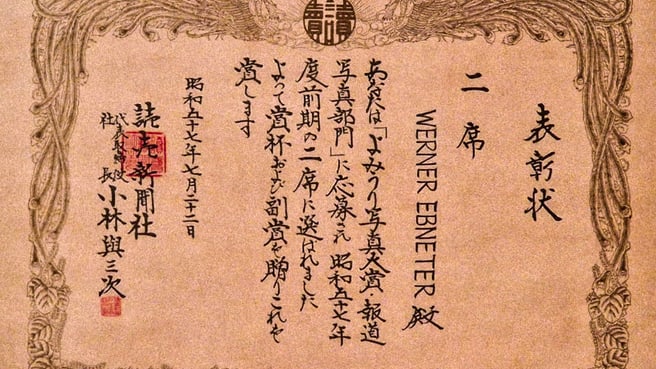 讀賣
表彰状
二席
WERNER EBNETER 殿
あなたは「よみうり写真大賞・報道
写真部門」に応募され昭和五十七年
度前期の二席に選ばれました
よって賞杯および副賞を贈りこれを
賞します
昭和五十七年七月二十二日
読売新聞社
代表取締役
社長 小林與三次